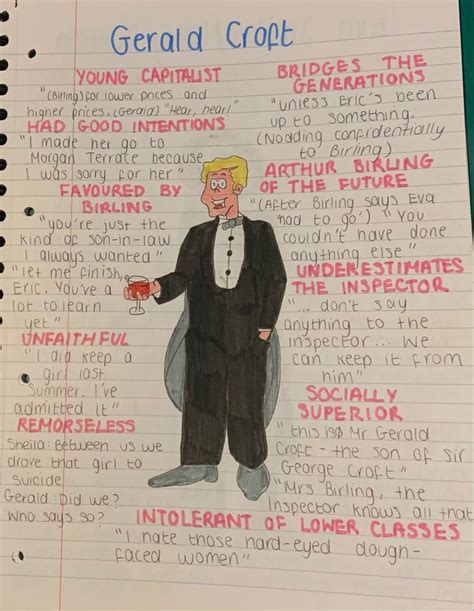 Gerald Croft
YOUNG CAPITALIST
"(Birling) for lower prices and
higher prices. (Gerald) "Hear, hear!"
HAD GOOD INTENTIONS
"I made her go to
Morgan Terrace because
I was sorry for her"
FAVOURED BY
BIRLING
"you're just the
kind of son-in-law
I always wanted"
"let me finish,
Eric. You've a
lot to learn
yet"
UNFAITHFUL
"I did keep a
girl last
Summer. I've
admitted it"
REMORSELESS
Sheila: Between us we
drove that girl to
suicide
Gerald: Did we?
Who says so?
BRIDGES THE
GENERATIONS
"unless Eric's been
up to something.
(Nodding confidentially
to Birling)
ARTHUR BIRLING
OF THE FUTURE
"(After Birling says Eva
'had to go') "You
couldn't have done
anything else"
UNDERESTIMATES
THE INSPECTOR
"... don't say
anything to the
inspector... We
can keep it from
him"
SOCIALLY
SUPERIOR
"this is Mr Gerald
Croft - the son of Sir
George Croft"
"Mrs Birling, the
Inspector knows all that"
INTOLERANT OF LOWER CLASSES
"I hate those hard-eyed dough-
faced women"